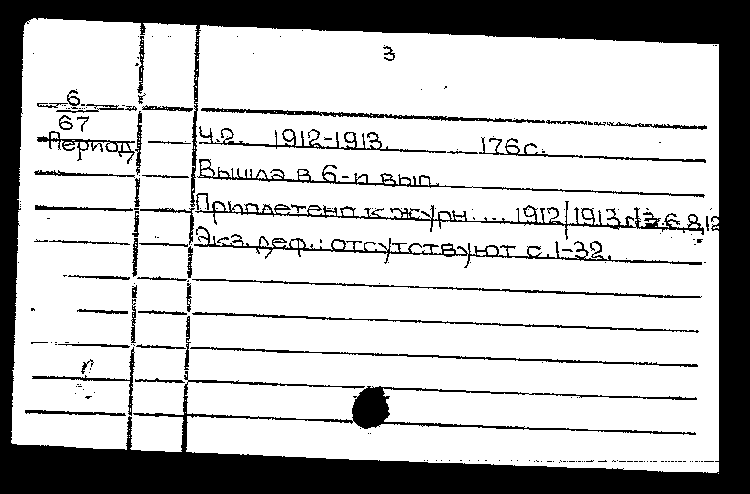 3
6
67
Период
Ч.2. 1912-1913. 176 с.
Вышла в 6-и вып.
Приплетена к журн: ... 1912/1913 №3,6,8,12
Экз. деф.: отсутствуют с. 1-32.